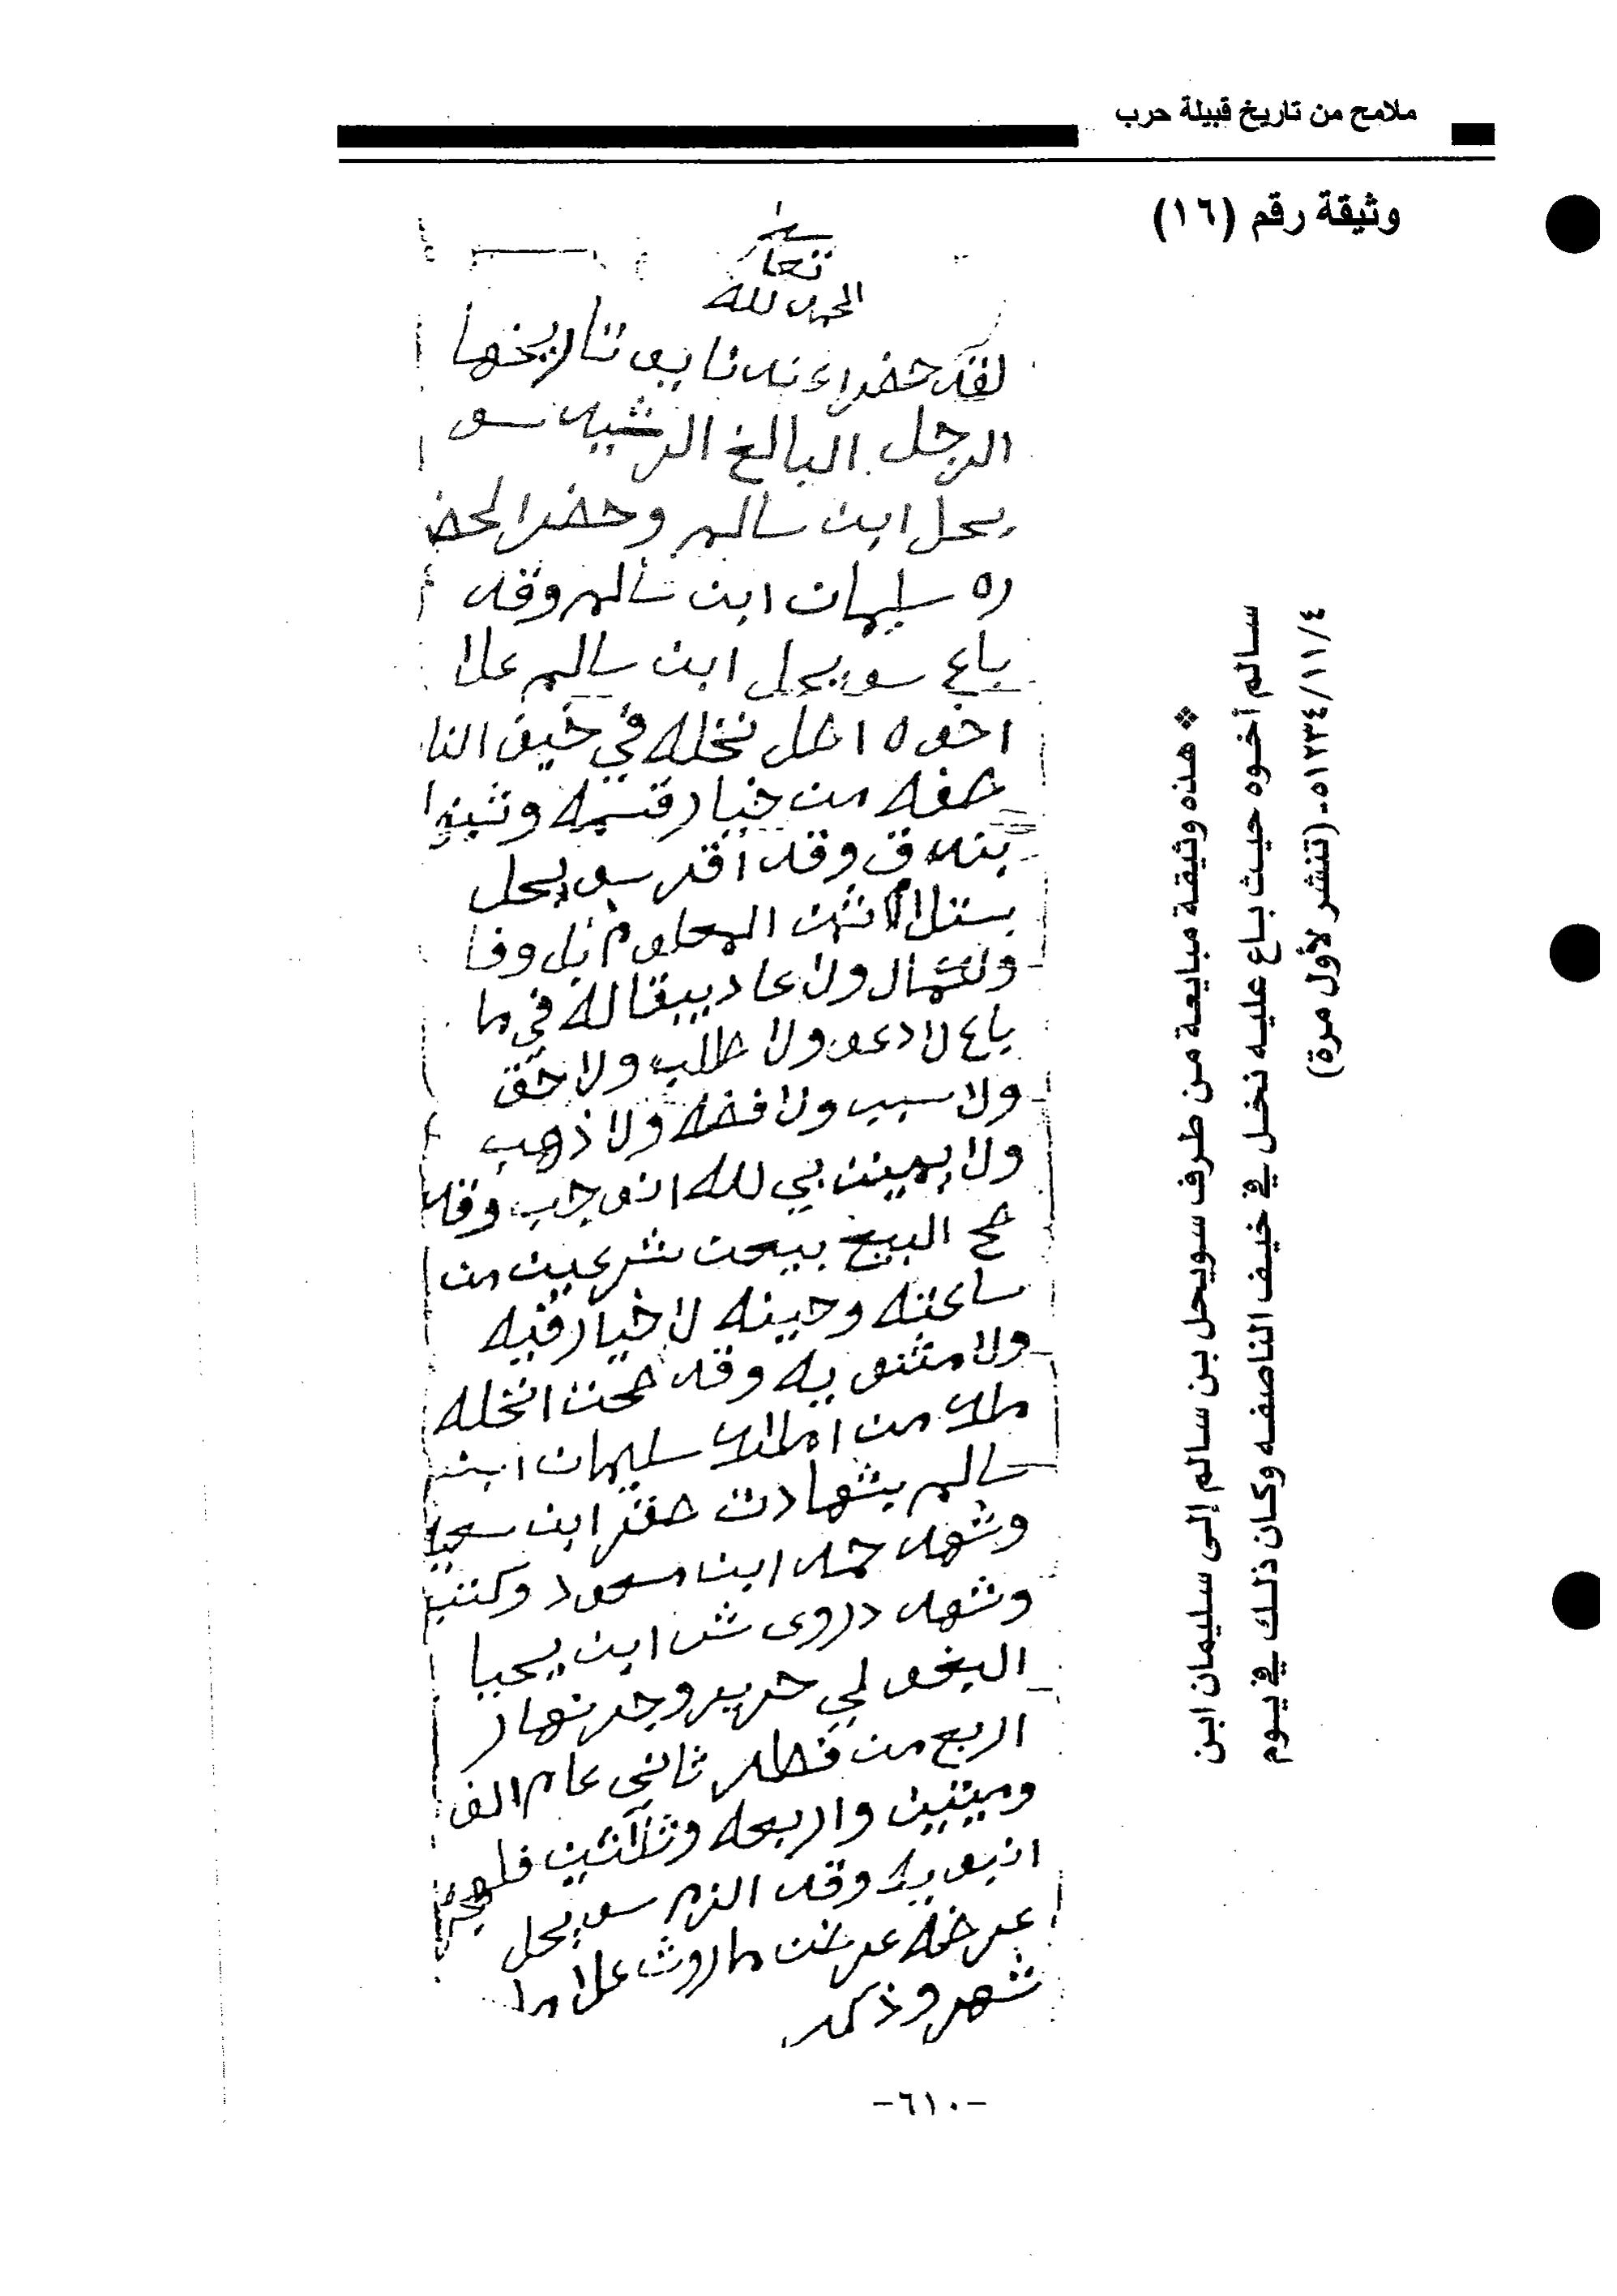 ملامح من تاريخ قبيلة حرب
وثيقة رقم (١٦)
تعا
الحمد لله
لقد حضرا عند نا يوم تاريخها
الرجل البالغ الرشيد سو
يحل ابن سالم وحضر الحض
ره سليمان ابن سالم وقد
باع سويحل ابن سالم علا
اخوه اصل نخله في خيف النا
صفه من خيار قسمه
وقد اقر سويحل
ثمن المعلوم بل وفا
ولكمال ولا عاد يبقاله في ما
باع لا دعو ولا طلب ولا حق
ولا سبب ولا فضه ولا ذهب
ولا يمينن بي لله انوجب وقد
صح البيع بيعت شرعين من
ساعته وحينه لا خيار فيه
ولا مثنويه وقد صحت انخله
ملك من املاك سليمان ابن
سالم بشهادت صقر ابن سعيد
وشهد حمد ابن مسعود وكتب
وشهد دروى ش ابن يحيا
حرير وجر نهار
اربع من فطر ثاني عام الف
وميتين واربعه وثلاثين
وقد الزم سويحل
عرضه علا ما
شهر وذكر
❖ هذه وثيقة مبايعة من طرف سويحل بن سالم إلى سليمان ابن
سالم أخوه حيث باع عليه نخل في خيف الناصفه وكان ذلك في يوم
١٢٣٤/١١/٤هـ. (تنشر لأول مرة)
-٦١٠-